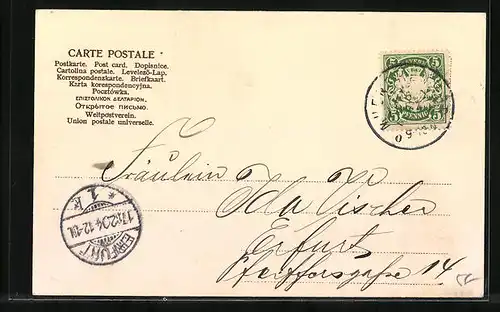 CARTE POSTALE
Postkarte. Post card. Dopisnice.
Cartolina postale. Levelező-Lap.
Korrespondenzkarte. Briefkaart.
Karta korespondencyjna.
Pocztówka.
ΕΠΙΣΤΟΛΙΚΟΝ ΔΕΛΤΑΡΙΟΝ.
Открытое письмо.
Weltpostverein.
Union postale universelle.
BAYERN
5 5
5 PFENNIG 5
Fräulein
Ida Vischer
Erfurt
Pfeiffersgaße 14
ERFURT
17.12.04.12-1N.
* 1 k